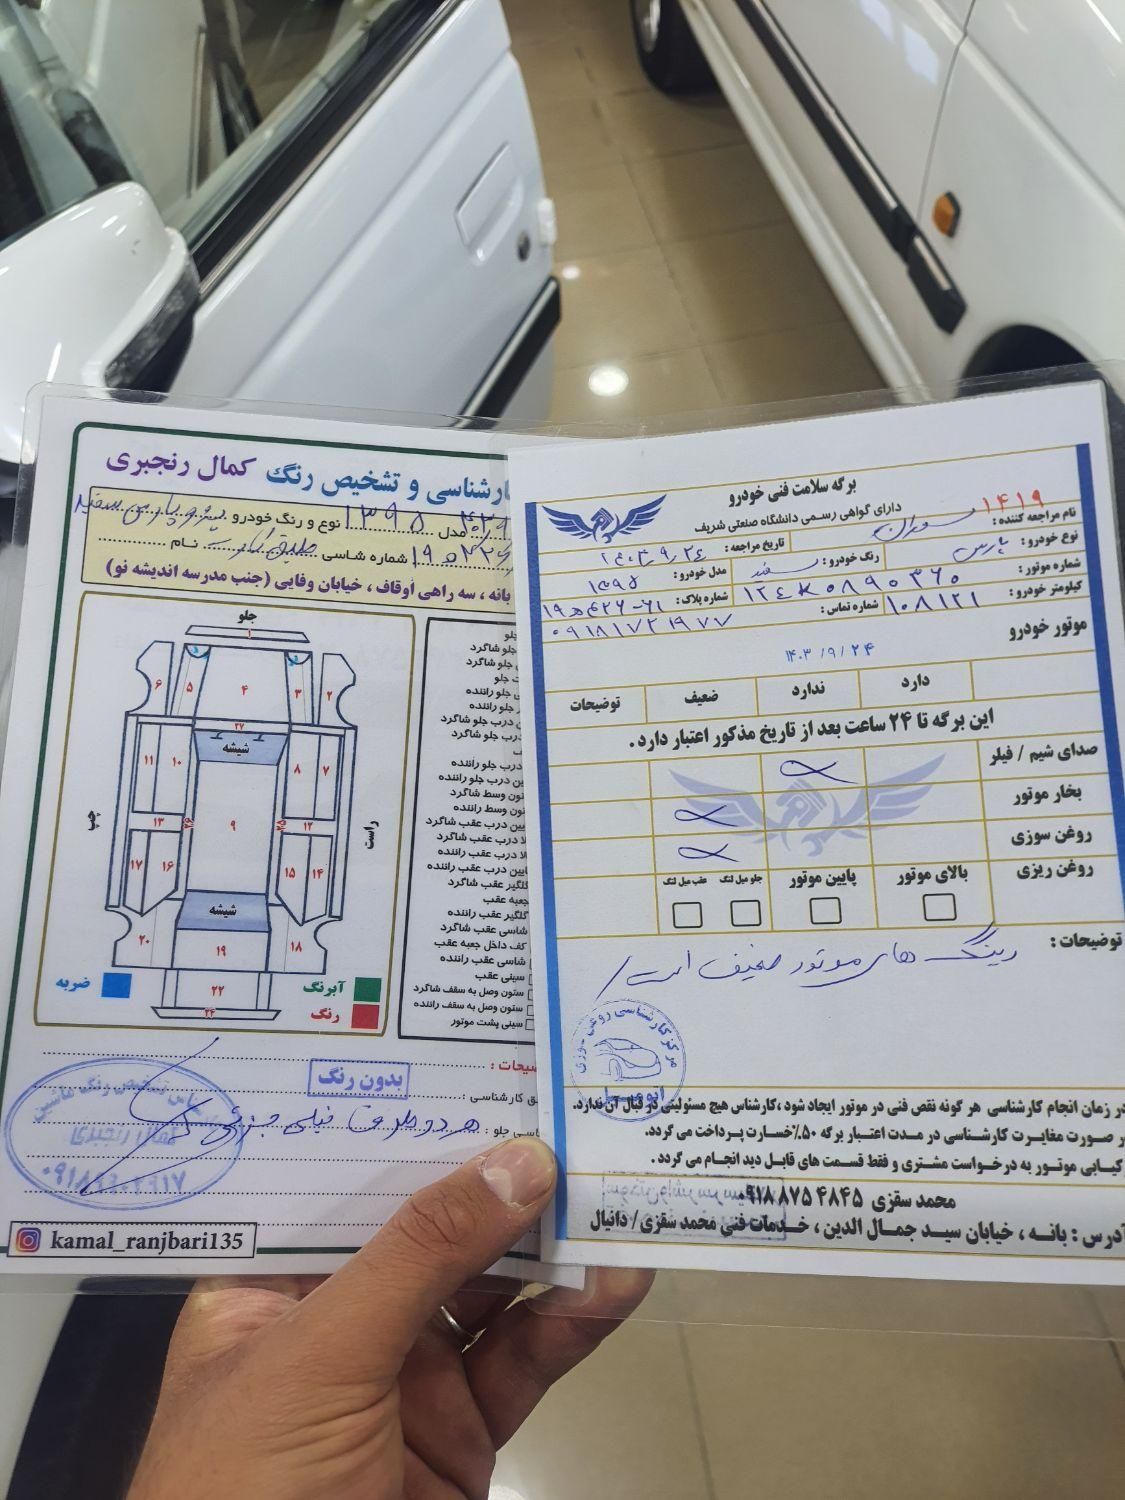 کارشناسی و تشخیص رنگ کمال رنجبری
مدل ۱۳۹۸ نوع و رنگ خودرو پژو پارس سفید
شماره شاسی طبق کارت نام
بانه ، سه راهی اوقاف ، خیابان وفایی (جنب مدرسه اندیشه نو)
جلو
۱
۶
۵
۴
۳
۲
۲۷
شیشه
۱۱
۱۰
۸
۷
چپ
۱۳
۲۶
۹
۲۵
۱۲
راست
۱۷
۱۶
۱۵
۱۴
شیشه
۲۰
۱۹
۱۸
۲۲
آبرنگ
ضربه
رنگ
جلو
جلو شاگرد
جلو شاگرد
جلو
جلو راننده
جلو راننده
درب جلو شاگرد
درب جلو شاگرد
درب جلو راننده
درب جلو راننده
ستون وسط شاگرد
ستون وسط راننده
پایین درب عقب شاگرد
بالا درب عقب شاگرد
بالا درب عقب راننده
پایین درب عقب راننده
گلگیر عقب شاگرد
جعبه عقب
گلگیر عقب راننده
شاسی عقب شاگرد
کف داخل جعبه عقب
شاسی عقب راننده
سینی عقب
ستون وصل به سقف شاگرد
ستون وصل به سقف راننده
سینی پشت موتور
توضیحات :
بدون رنگ
کارشناسی :
شاسی جلو : هر دو طرف خیلی جزئی
کارشناس تشخیص رنگ ماشین
کمال رنجبری
kamal_ranjbari135
برگه سلامت فنی خودرو
دارای گواهی رسمی دانشگاه صنعتی شریف
۱۴۱۹
نام مراجعه کننده :
تاریخ مراجعه : ۱۴۰۳/۹/۲۴
نوع خودرو : پارس
رنگ خودرو : سفید
مدل خودرو : ۱۳۹۸
شماره موتور : ۱۲۴K۰۸۹۰۳۶۰
شماره پلاک : ۱۹ه۴۲۶-۶۱
کیلومتر خودرو : ۱۰۸۱۲۱
شماره تماس : ۰۹۱۸۱۷۲۱۹۷۷
موتور خودرو
۱۴۰۳/۹/۲۴
دارد
ندارد
ضعیف
توضیحات
این برگه تا ۲۴ ساعت بعد از تاریخ مذکور اعتبار دارد .
صدای شیم / فیلر
بخار موتور
روغن سوزی
روغن ریزی
بالای موتور
پایین موتور
جلو میل لنگ
عقب میل لنگ
توضیحات :
رینگ های موتور ضعیف است
مرکز کارشناسی روغن سوزی
در زمان انجام کارشناسی هر گونه نقص فنی در موتور ایجاد شود ،کارشناس هیچ مسئولیتی در قبال آن ندارد.
در صورت مغایرت کارشناسی در مدت اعتبار برگه ۵۰٪خسارت پرداخت می گردد.
کیابی موتور به درخواست مشتری و فقط قسمت های قابل دید انجام می گردد .
محمد سقزی ۰۹۱۸۸۷۵۴۸۴۵
آدرس : بانه ، خیابان سید جمال الدین ، خدمات فنی محمد سقزی/ دانیال